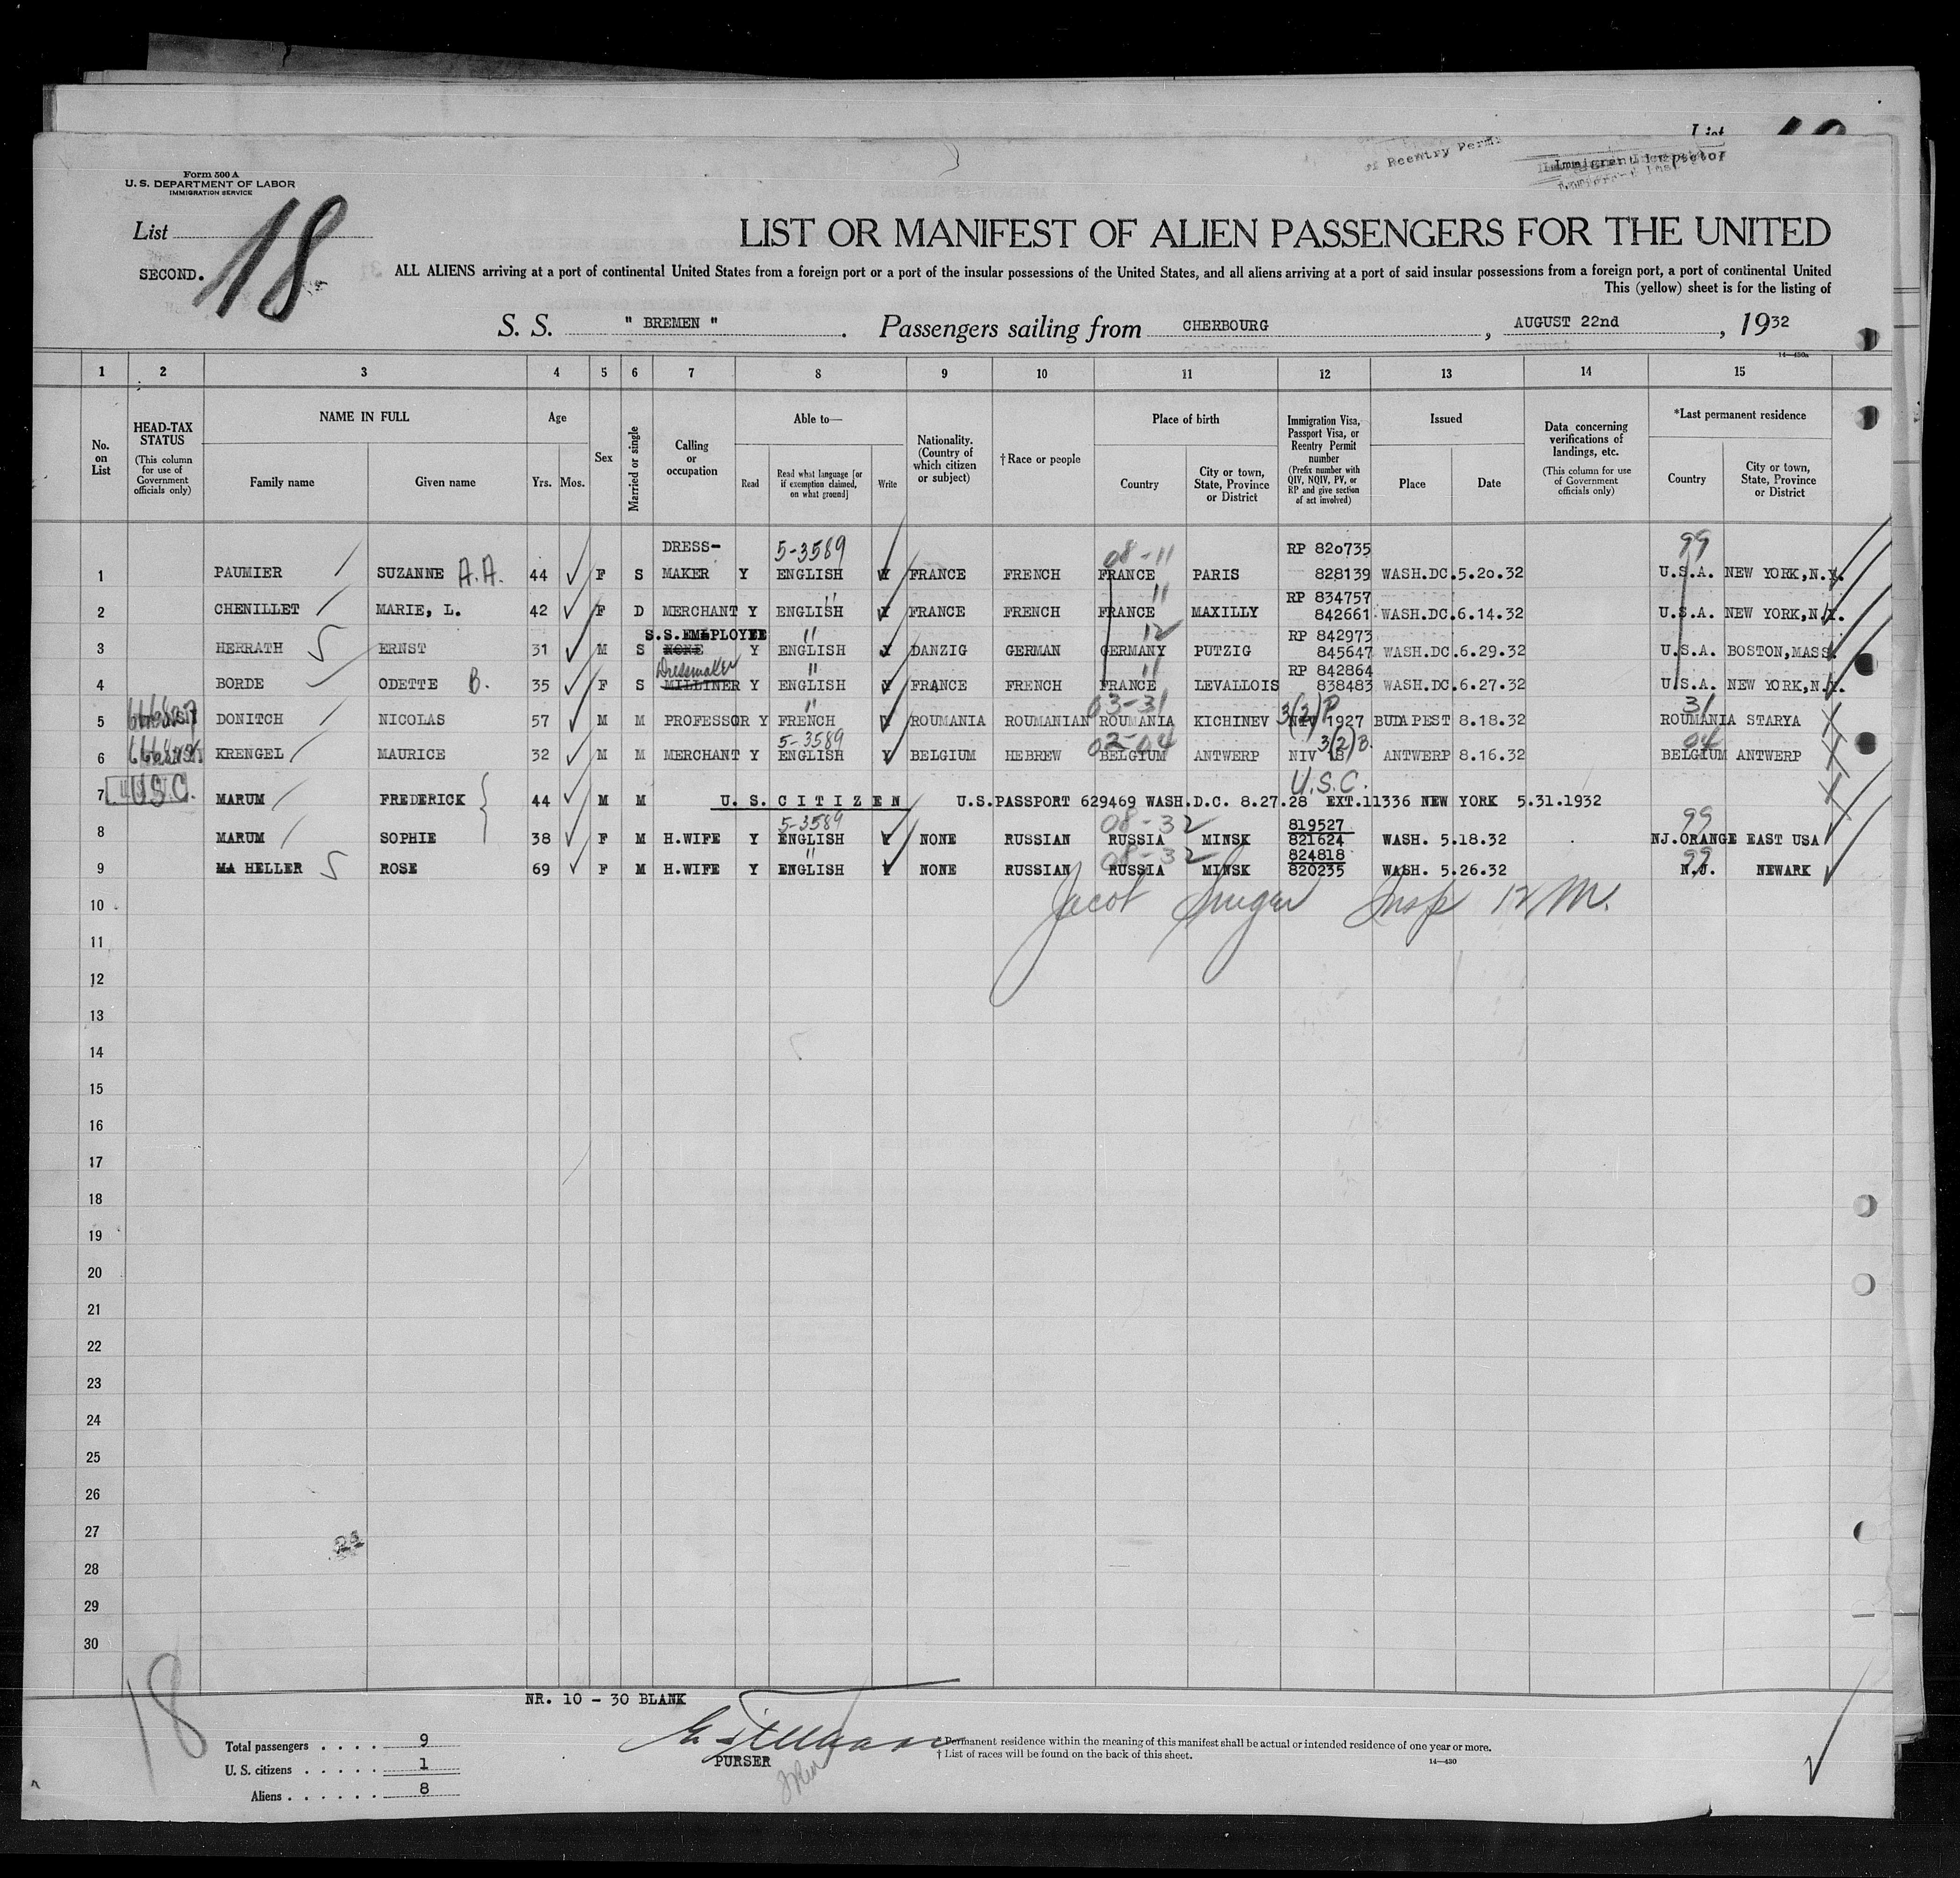 List
of Reentry Permi
Immigrant Inspector
Form 500 A
U. S. DEPARTMENT OF LABOR
IMMIGRATION SERVICE
List 18
LIST OR MANIFEST OF ALIEN PASSENGERS FOR THE UNITED
SECOND.
ALL ALIENS arriving at a port of continental United States from a foreign port or a port of the insular possessions of the United States, and all aliens arriving at a port of said insular possessions from a foreign port, a port of continental United
This (yellow) sheet is for the listing of
S. S. " BREMEN " . Passengers sailing from CHERBOURG , AUGUST 22nd , 1932
14—430a
1 2 3 4 5 6 7 8 9 10 11 12 13 14 15
No. on List
HEAD-TAX STATUS (This column for use of Government officials only)
NAME IN FULL
Family name Given name
Age
Yrs. Mos.
Sex
Married or single
Calling or occupation
Able to—
Read Read what language [or if exemption claimed, on what ground] Write
Nationality. (Country of which citizen or subject)
†Race or people
Place of birth
Country City or town, State, Province or District
Immigration Visa, Passport Visa, or Reentry Permit number (Prefix number with QIV, NQIV, PV, or RP and give section of act involved)
Issued
Place Date
Data concerning verifications of landings, etc. (This column for use of Government officials only)
*Last permanent residence
Country City or town, State, Province or District
DRESS- 5-3589 08-11 RP 820735 99
1 PAUMIER SUZANNE A.A. 44 F S MAKER Y ENGLISH Y FRANCE FRENCH FRANCE PARIS 828139 WASH.DC.5.20.32 U.S.A. NEW YORK,N.Y.
" 11 RP 834757
2 CHENILLET MARIE, L. 42 F D MERCHANT Y ENGLISH Y FRANCE FRENCH FRANCE MAXILLY 842661 WASH.DC.6.14.32 U.S.A. NEW YORK,N.Y.
S.S.EMPLOYEE " 12 RP 842973
3 HERRATH ERNST 31 M S NONE Y ENGLISH Y DANZIG GERMAN GERMANY PUTZIG 845647 WASH.DC.6.29.32 U.S.A. BOSTON,MASS.
Dressmaker " 11 RP 842864
4 BORDE ODETTE B. 35 F S MILLINER Y ENGLISH Y FRANCE FRENCH FRANCE LEVALLOIS 838483 WASH.DC.6.27.32 U.S.A. NEW YORK,N.Y.
" 03-31 3(2)P 31
5 DONITCH NICOLAS 57 M M PROFESSOR Y FRENCH Y ROUMANIA ROUMANIAN ROUMANIA KICHINEV NIV 1927 BUDAPEST 8.18.32 ROUMANIA STARYA
5-3589 02-04 3(2)B. 04
6 KRENGEL MAURICE 32 M M MERCHANT Y ENGLISH Y BELGIUM HEBREW BELGIUM ANTWERP NIV ANTWERP 8.16.32 BELGIUM ANTWERP
U.S.C. U.S.C.
7 MARUM FREDERICK 44 M M U. S. C I T I Z E N U.S.PASSPORT 629469 WASH.D.C. 8.27.28 EXT.11336 NEW YORK 5.31.1932
5-3589 08-32 819527 99
8 MARUM SOPHIE 38 F M H.WIFE Y ENGLISH Y NONE RUSSIAN RUSSIA MINSK 821624 WASH. 5.18.32 NJ.ORANGE EAST USA
" 08-32 824818 99
9 MA HELLER ROSE 69 F M H.WIFE Y ENGLISH Y NONE RUSSIAN RUSSIA MINSK 820235 WASH. 5.26.32 N.J. NEWARK
10 Jacot Insp 12 M.
11
12
13
14
15
16
17
18
19
20
21
22
23
24
25
26
27
28
29
30
NR. 10 - 30 BLANK
18
Total passengers . . . . 9
U. S. citizens . . . . . 1
Aliens . . . . . . 8
PURSER
* Permanent residence within the meaning of this manifest shall be actual or intended residence of one year or more.
† List of races will be found on the back of this sheet.
14—430